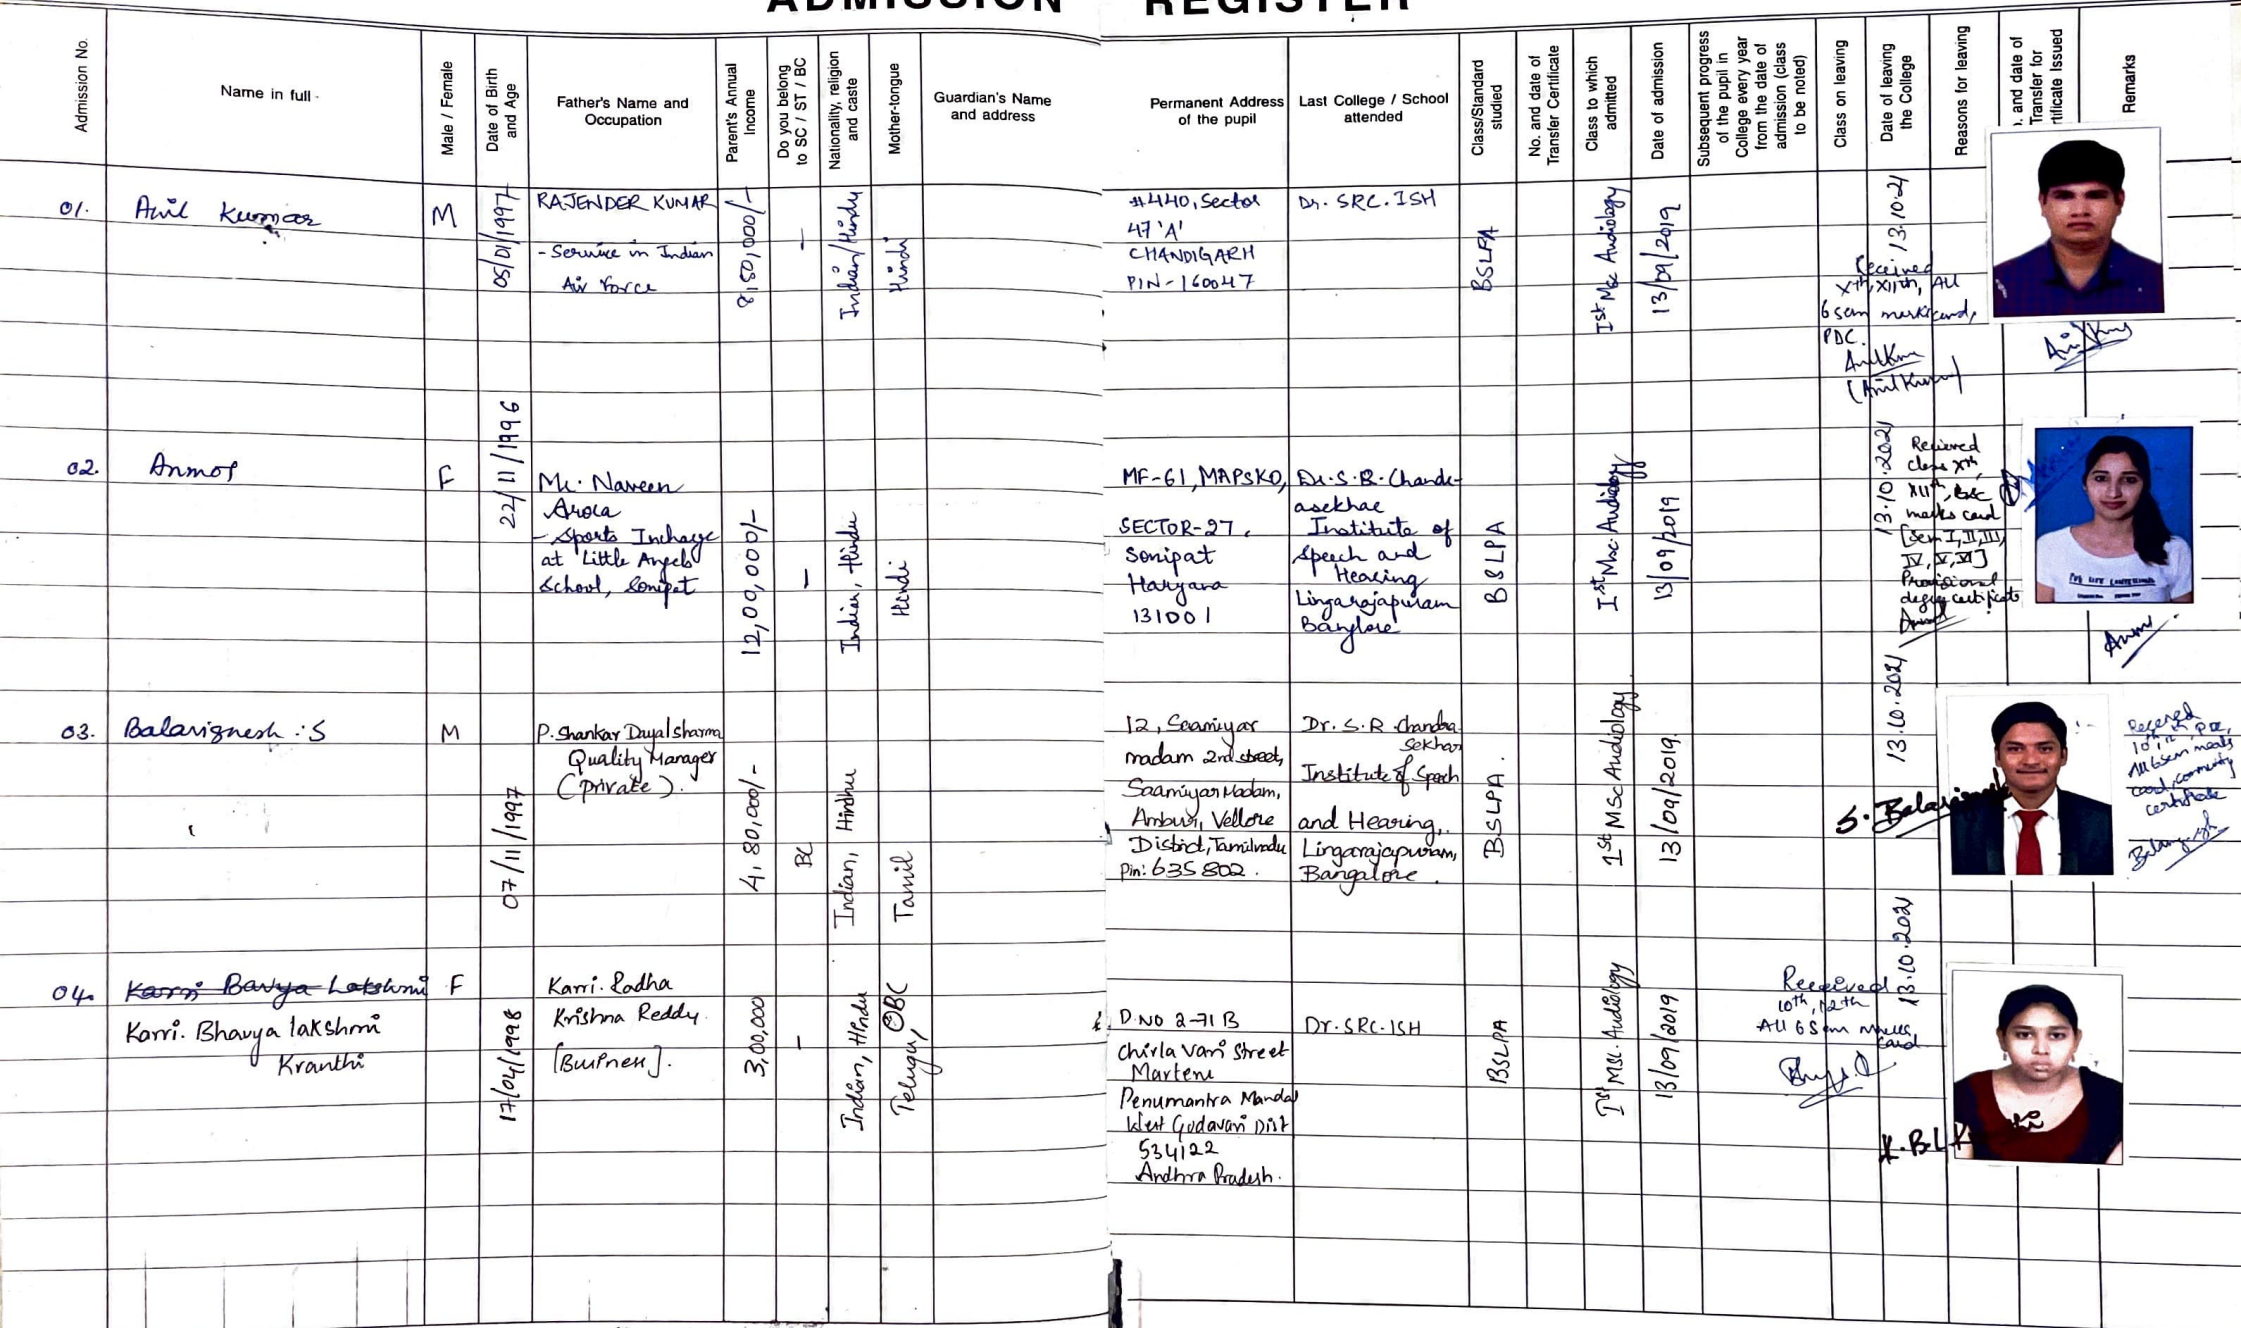 ADMISSION REGISTER
Admission No.
Name in full
Male / Female
Date of Birth
and Age
Father's Name and
Occupation
Parent's Annual
Income
Do you belong
to SC / ST / BC
Nationality, religion
and caste
Mother-tongue
Guardian's Name
and address
Permanent Address
of the pupil
Last College / School
attended
Class/Standard
studied
No. and date of
Transfer Certificate
Class to which
admitted
Date of admission
Subsequent progress
of the pupil in
College every year
from the date of
admission (class
to be noted)
Class on leaving
Date of leaving
the College
Reasons for leaving
. and date of
Transfer for
rtificate Issued
Remarks
01.
Anil Kumar
M
05/01/1997
RAJENDER KUMAR
- Service in Indian
Air Force
8,50,000/-
-
Indian/Hindu
Hindi
#440, Sector
47 'A'
CHANDIGARH
PIN - 160047
Dr. SRC. ISH
BSLPA
Ist Msc Audiology
13/09/2019
13.10.21
Received
Xth, XIIth, All
6 sem markscard,
PDC.
(Anil Kumar)
02.
Anmol
F
22/11/1996
Mr. Naveen
Arora
- Sports Incharge
at Little Angels
School, Sonipat
12,00,000/-
-
Indian, Hindu
Hindi
MF-61, MAPSKO,
SECTOR-27,
Sonipat
Haryana
131001
Dr. S. R. Chandr-
asekhar
Institute of
Speech and
Hearing
Lingarajapuram
Banglore
BSLPA
Ist Msc Audiology
13/09/2019
13.10.2021
Recieved
class Xth,
XIIth, Bsc
marks card
[Sem I, II, III,
IV, V, VI]
Provisional
degree certificate
03.
Balavignesh .S
M
07/11/1997
P. Shankar Dayal sharma
Quality Manager
(Private).
4,80,000/-
BC
Indian, Hindhu
Tamil
12, Saamiyar
madam 2nd street,
Saamiyar Madam,
Ambur, Vellore
District, Tamilnadu
Pin: 635802.
Dr. S.R Chandra
Sekhar
Institute of Speech
and Hearing,
Lingarajapuram,
Bangalore.
BSLPA.
1st MSc Audiology.
13/09/2019.
13.10.2021
S. Balavignesh
Received
10th, 12th, PDC,
All 6 sem marks
card, community
certificate
04.
Karri Bavya Lakshmi
Karri. Bhavya lakshmi
Kranthi
F
17/04/1998
Karri. Radha
Krishna Reddy.
[Business].
3,00,000
-
Indian, Hindu
OBC
Telugu,
D.NO 2-71 B
Chirla vari Street
Marteru
Penumantra Mandal
West Godavari Dist
534122
Andhra Pradesh.
Dr. SRC. ISH
BSLPA
Ist MSc. Audiology
13/09/2019
13.10.2021
Received
10th, 12th
All 6 Sem marks
card
K.B.L K